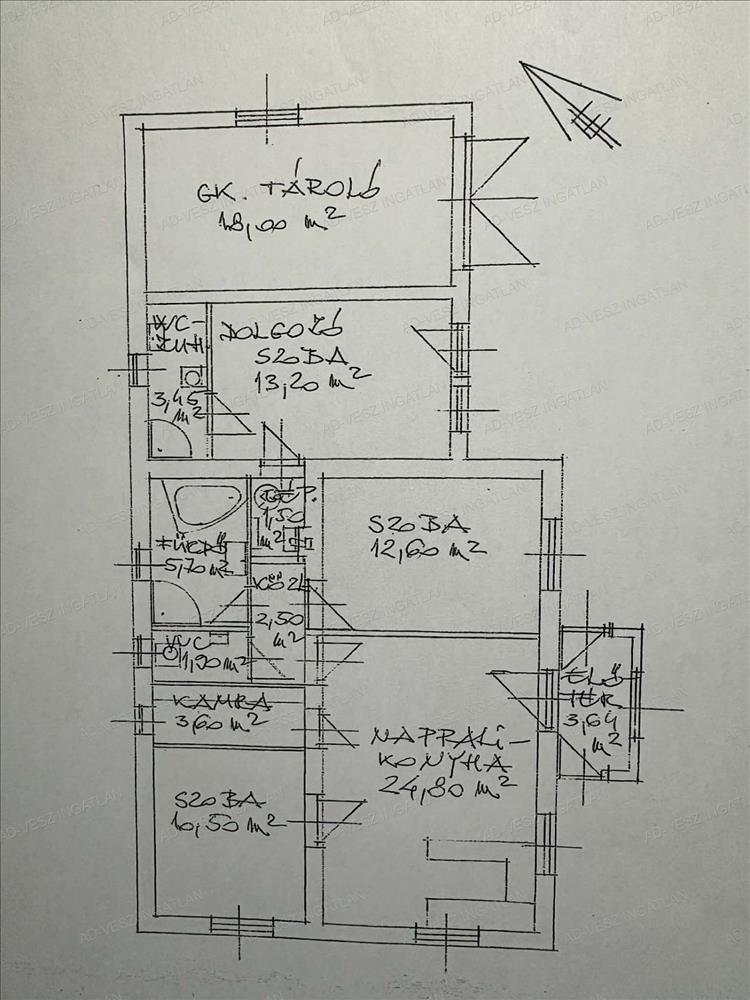 GK. TÁROLÓ
18,00 m²
WC-
ZUH.
3,45
m²
DOLGOZÓ
SZOBA
13,20 m²
GÉP.
1,50
m²
SZOBA
12,60 m²
FÜRDŐ
5,70 m²
KÖZL
2,50
m²
WC
1,90 m²
ELŐ
TÉR
3,64
m²
KAMRA
3,60 m²
NAPPALI-
KONYHA
24,80 m²
SZOBA
10,50 m²
AD-VESZ INGATLAN